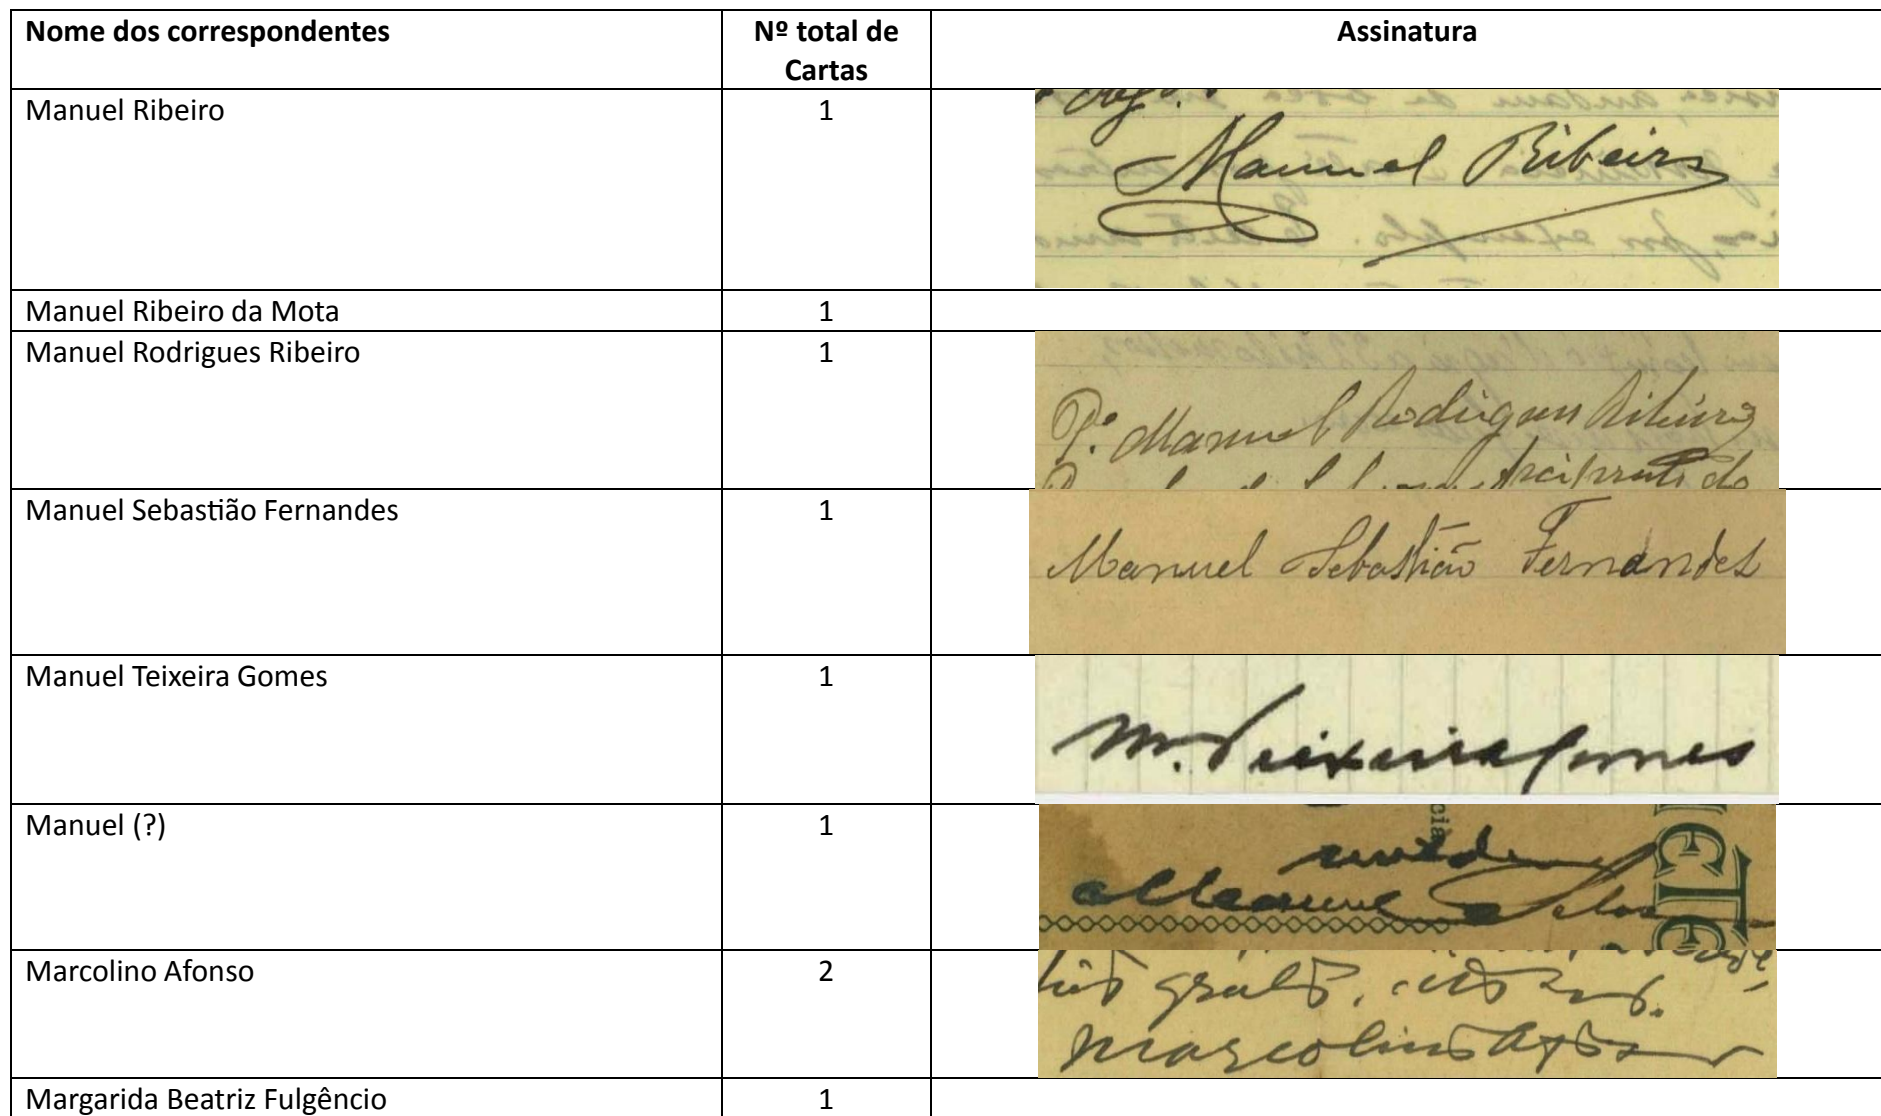 Nome dos correspondentes
Nº total de Cartas
Assinatura
Manuel Ribeiro
1
Manuel Ribeiro
Manuel Ribeiro da Mota
1
Manuel Rodrigues Ribeiro
1
P.e Manuel Rodrigues Ribeiro
Manuel Sebastião Fernandes
1
Manuel Sebastião Fernandes
Manuel Teixeira Gomes
1
M. Teixeira Gomes
Manuel (?)
1
Manuel
Marcolino Afonso
2
Marcolino Afonso
Margarida Beatriz Fulgêncio
1